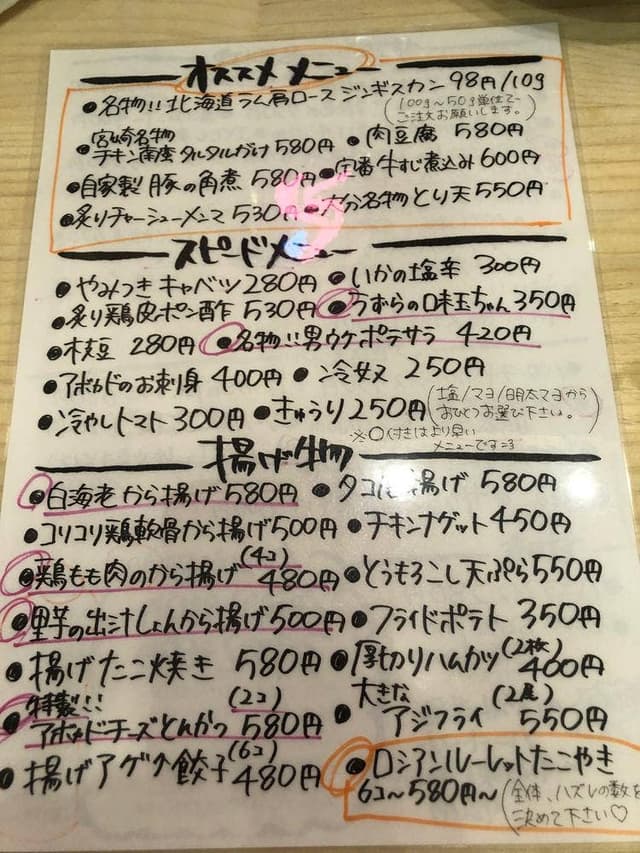 オススメメニュー
●名物!!北海道ラム肩ロースジンギスカン 98円/10g
(100g〜50g単位でご注文お願いします。)
●宮崎名物
チキン南蛮タルタルだけ 580円 ●肉豆腐 580円
●自家製豚の角煮 580円 ●定番牛すじ煮込み 600円
●炙りチャーシューメンマ 530円 ●大分名物とり天 550円
スピードメニュー
●やみつきキャベツ 280円 ●いかの塩辛 300円
●炙り鶏皮ポン酢 530円 ●うずらの味玉ちゃん 350円
●枝豆 280円 ●名物!!男ウケポテサラ 420円
●アボカドのお刺身 400円 ●冷奴 250円
●冷やしトマト 300円 ●きゅうり 250円
(塩/マヨ/明太マヨから
おひとつお選び下さい。)
※○付きはより早い
メニューです=3
揚げ物
●白海老から揚げ 580円 ●タコ 揚げ 580円
●コリコリ鶏軟骨から揚げ 500円 ●チキンナゲット 450円
●鶏もも肉のから揚げ (4コ) 480円 ●とうもろこし天ぷら 550円
●里芋の出汁しょんから揚げ 500円 ●フライドポテト 350円
●揚げたこ焼き 580円 ●厚切りハムカツ (2枚) 400円
●特製!!
アボカドチーズとんかつ (2コ) 580円 ●大きな
アジフライ (2尾) 550円
●揚げアゲ↑餃子 (6コ) 480円 ●ロシアンルーレットたこやき
6コ〜580円〜 (全体、ハズレの数を
決めて下さい♡)